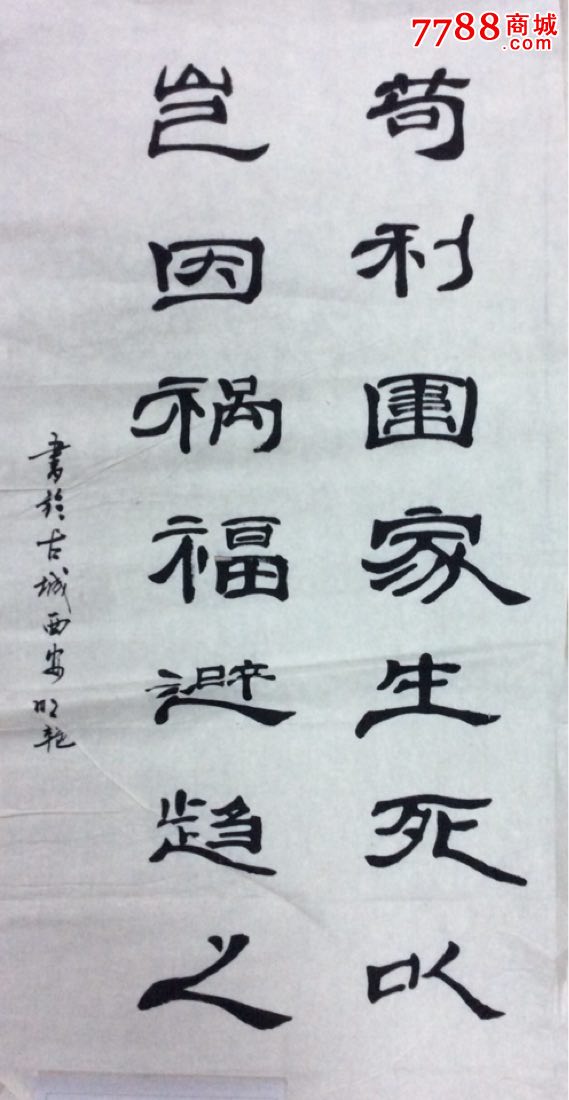 7788商城
.com
苟利国家生死以
岂因祸福避趋之
書於古城西安